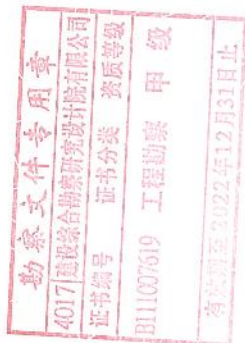 勘察文件专用章
4017 建设综合勘察研究设计院有限公司
证书编号 证书分类 资质等级
B111007619 工程勘察 甲级
有效期至2022年12月31日止